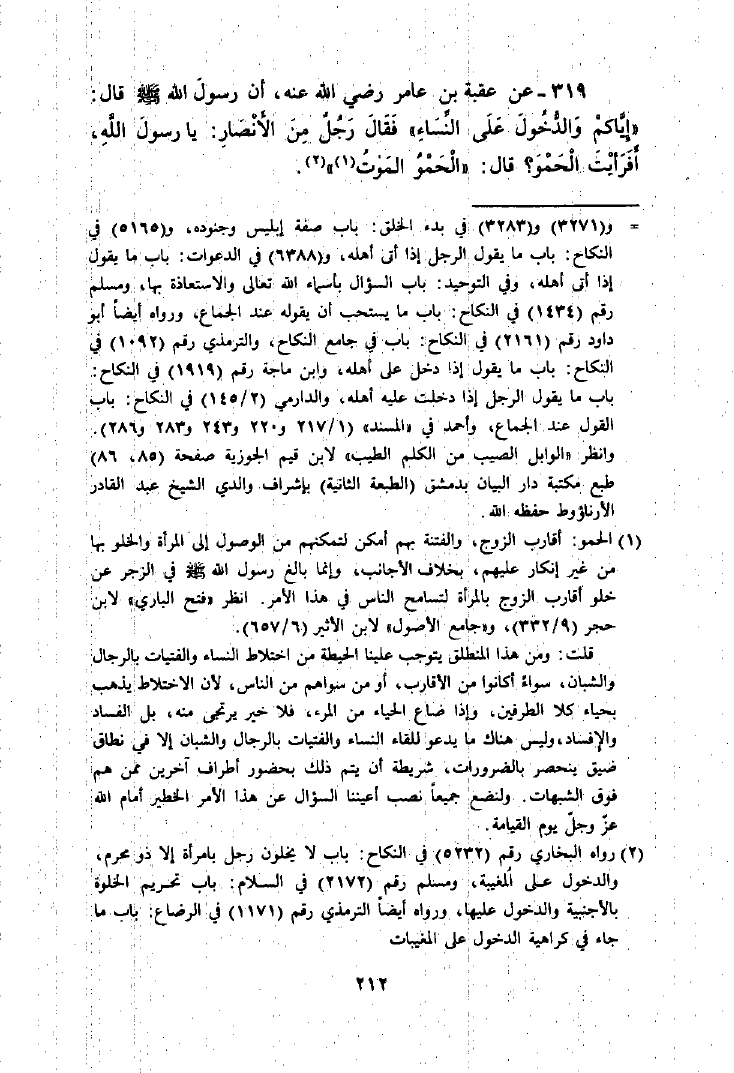 ٣١٩ - عن عقبة بن عامر رضي الله عنه، أن رسولَ الله ﷺ قال:
«إِيَّاكمْ وَالدُّخُولَ عَلَى النِّسَاءِ» فَقَالَ رَجُلٌ مِنَ الأَنْصَارِ: يا رسولَ اللَّهِ،
أَفَرَأَيْتَ الْحَمْوَ؟ قال: «الْحَمْوُ المَوْتُ(١)»(٢).
= و(٣٢٧١) و(٣٢٨٣) في بدء الخلق: باب صفة إبليس وجنوده، و(٥١٦٥) في
النكاح: باب ما يقول الرجل إذا أتى أهله، و(٦٣٨٨) في الدعوات: باب ما يقول
إذا أتى أهله، وفي التوحيد: باب السؤال بأسماء الله تعالى والاستعاذة بها، ومسلم
رقم (١٤٣٤) في النكاح: باب ما يستحب أن يقوله عند الجماع، ورواه أيضاً أبو
داود رقم (٢١٦١) في النكاح: باب في جامع النكاح، والترمذي رقم (١٠٩٢) في
النكاح: باب ما يقول إذا دخل على أهله، وابن ماجة رقم (١٩١٩) في النكاح:
باب ما يقول الرجل إذا دخلت عليه أهله، والدارمي (١٤٥/٢) في النكاح: باب
القول عند الجماع، وأحمد في «المسند» (٢١٧/١ و٢٢٠ و٢٤٣ و٢٨٣ و٢٨٦).
وانظر «الوابل الصيب من الكلم الطيب» لابن قيم الجوزية صفحة (٨٥، ٨٦)
طبع مكتبة دار البيان بدمشق (الطبعة الثانية) بإشراف والدي الشيخ عبد القادر
الأرناؤوط حفظه الله.
(١) الحمو: أقارب الزوج، والفتنة بهم أمكن لتمكنهم من الوصول إلى المرأة والخلو بها
من غير إنكار عليهم، بخلاف الأجانب، وإنما بالغ رسول الله ﷺ في الزجر عن
خلو أقارب الزوج بالمرأة لتسامح الناس في هذا الأمر. انظر «فتح الباري» لابن
حجر (٣٣٢/٩)، و«جامع الأصول» لابن الأثير (٦٥٧/٦).
قلت: ومن هذا المنطلق يتوجب علينا الحيطة من اختلاط النساء والفتيات بالرجال
والشبان، سواءً أكانوا من الأقارب، أو من سواهم من الناس، لأن الاختلاط يذهب
بحياء كلا الطرفين، وإذا ضاع الحياء من المرء، فلا خير يرتجى منه، بل الفساد
والإفساد، وليس هناك ما يدعو للقاء النساء والفتيات بالرجال والشبان إلا في نطاق
ضيق ينحصر بالضرورات، شريطة أن يتم ذلك بحضور أطراف آخرين ممن هم
فوق الشبهات. ولنضع جميعاً نصب أعيننا السؤال عن هذا الأمر الخطير أمام الله
عزّ وجلّ يوم القيامة.
(٢) رواه البخاري رقم (٥٢٣٢) في النكاح: باب لا يخلون رجل بامرأة إلا ذو محرم،
والدخول على المُغيبة، ومسلم رقم (٢١٧٢) في السلام: باب تحريم الخلوة
بالأجنبية والدخول عليها، ورواه أيضاً الترمذي رقم (١١٧١) في الرضاع: باب ما
جاء في كراهية الدخول على المغيبات
٢١٢